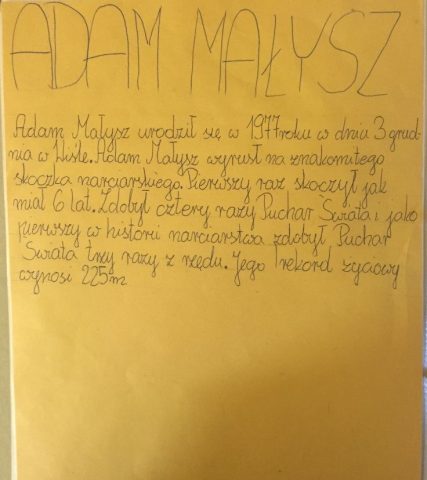 ADAM MAŁYSZ
Adam Małysz urodził się w 1977 roku w dniu 3 grud-
nia w Wiśle. Adam Małysz wyrusł na znakomitego
skoczka narciarskiego. Pierwszy raz skoczył jak
miał 6 lat. Zdobył cztery razy Puchar Świata i jako
pierwszy w historii narciarstwa zdobył Puchar
Świata trzy razy z rzędu. Jego rekord życiowy
wynosi 225m